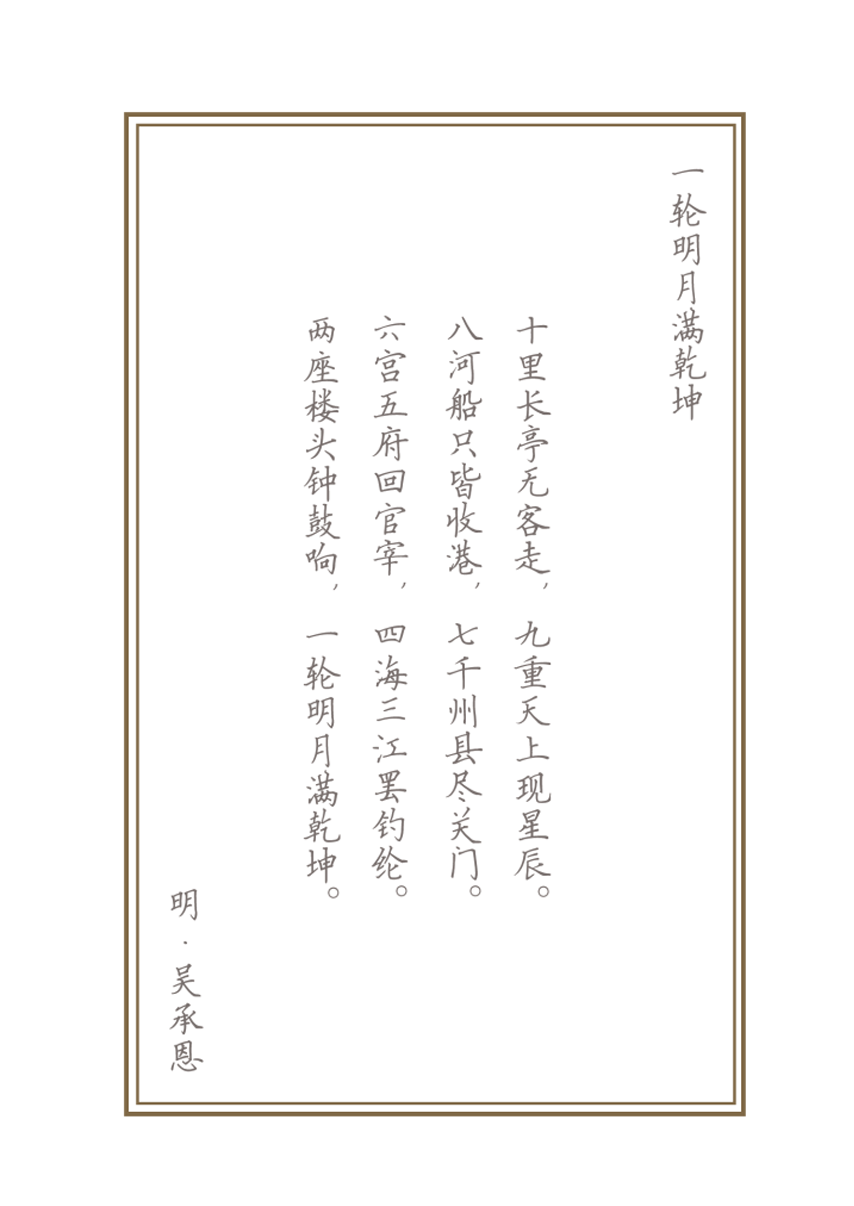 一轮明月满乾坤
十里长亭无客走，九重天上现星辰。
八河船只皆收港，七千州县尽关门。
六宫五府回官宰，四海三江罢钓纶。
两座楼头钟鼓响，一轮明月满乾坤。
明·吴承恩